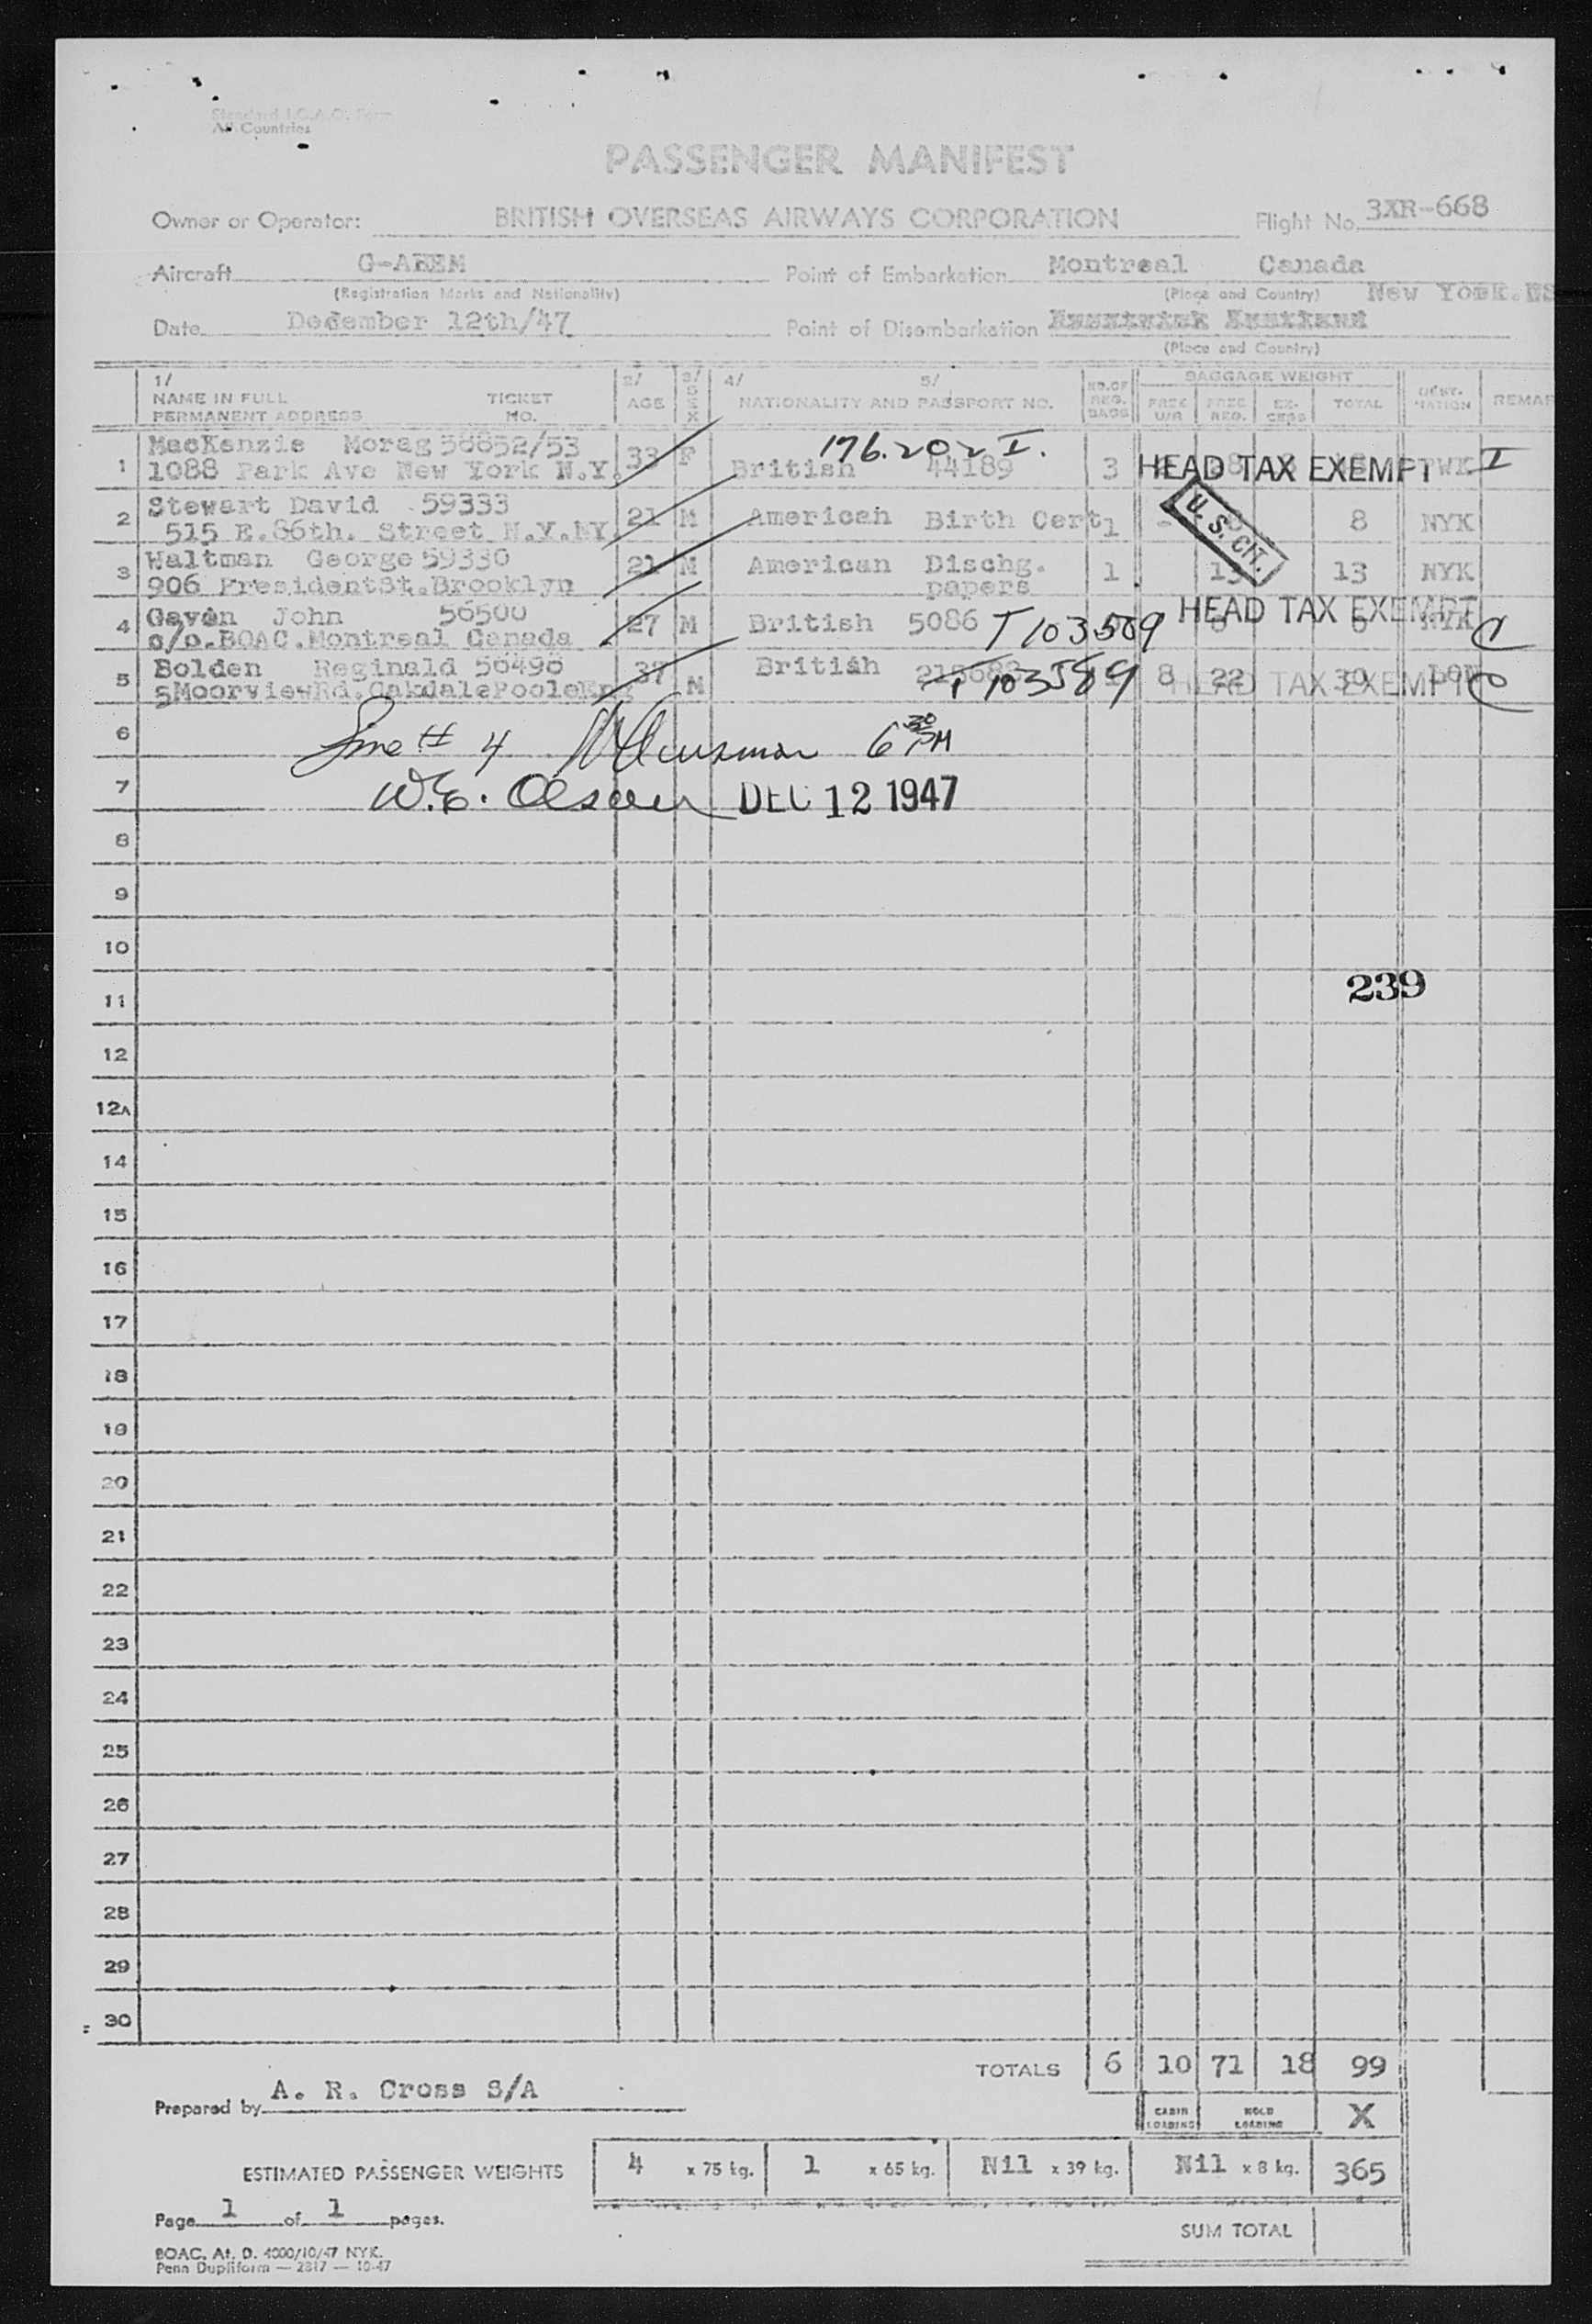 Standard I.C.A.O. Form
All Countries
PASSENGER MANIFEST
Owner or Operator: BRITISH OVERSEAS AIRWAYS CORPORATION Flight No. 3XR-668
Aircraft G-AKEM Point of Embarkation Montreal Canada
(Registration Marks and Nationality) (Place and Country) New York.US
Date December 12th/47 Point of Disembarkation
(Place and Country)
1/ NAME IN FULL PERMANENT ADDRESS TICKET NO. 2/ AGE 3/ SEX 4/ 5/ NATIONALITY AND PASSPORT NO. NO.OF REG. BAGS BAGGAGE WEIGHT FREE U/R FREE REG. EX-CESS TOTAL DEST-INATION REMAR
MacKenzie Morag 58852/53 176.202 I.
1 1088 Park Ave New York N.Y. 33 F British 44189 3 HEAD TAX EXEMPT PWK I
Stewart David 59333
2 515 E.86th. Street N.Y.NY. 21 M American Birth Cert 1 - 8 8 NYK
U.S. CIT.
Waltman George 59330
3 906 PresidentSt.Brooklyn 21 M American Dischg. papers 1 13 13 NYK
Gavin John 56500 HEAD TAX EXEMPT
4 c/o.BOAC.Montreal Canada 27 M British 5086 T103589 NYK C
Bolden Reginald 56498
5 5MoorviewRd.OakdalePooleEng 37 M British T103589 8 22 30 LON HEAD TAX EXEMPT C
6 Line # 4 6 30 PM
7 W.E. Olsen DEC 12 1947
8
9
10
11 239
12
12A
14
15
16
17
18
19
20
21
22
23
24
25
26
27
28
29
30
TOTALS 6 10 71 18 99
Prepared by A. R. Cross S/A
CABIN LOADING HOLD LOADING X
ESTIMATED PASSENGER WEIGHTS 4 x 75 kg. 1 x 65 kg. Nil x 39 kg. Nil x 8 kg. 365
Page 1 of 1 pages.
SUM TOTAL
BOAC. At. D. 4000/10/47 NYK.
Penn Dupliform — 2817 — 10-47